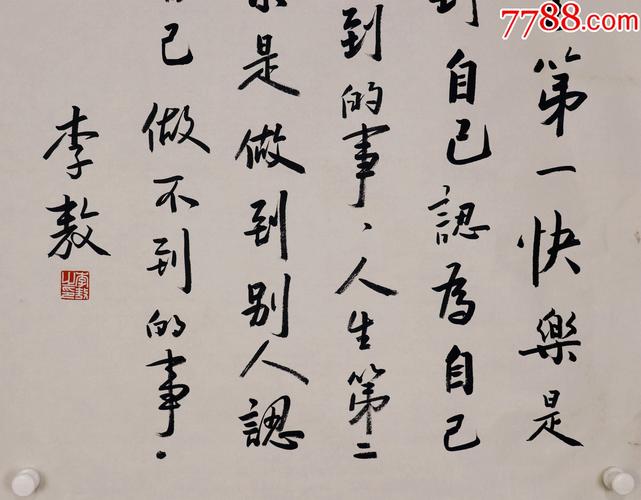 7788.com
第一快樂是
到自己認為自己
到的事、人生第二
樂是做到别人認
自己做不到的事。
李敖
李敖之印